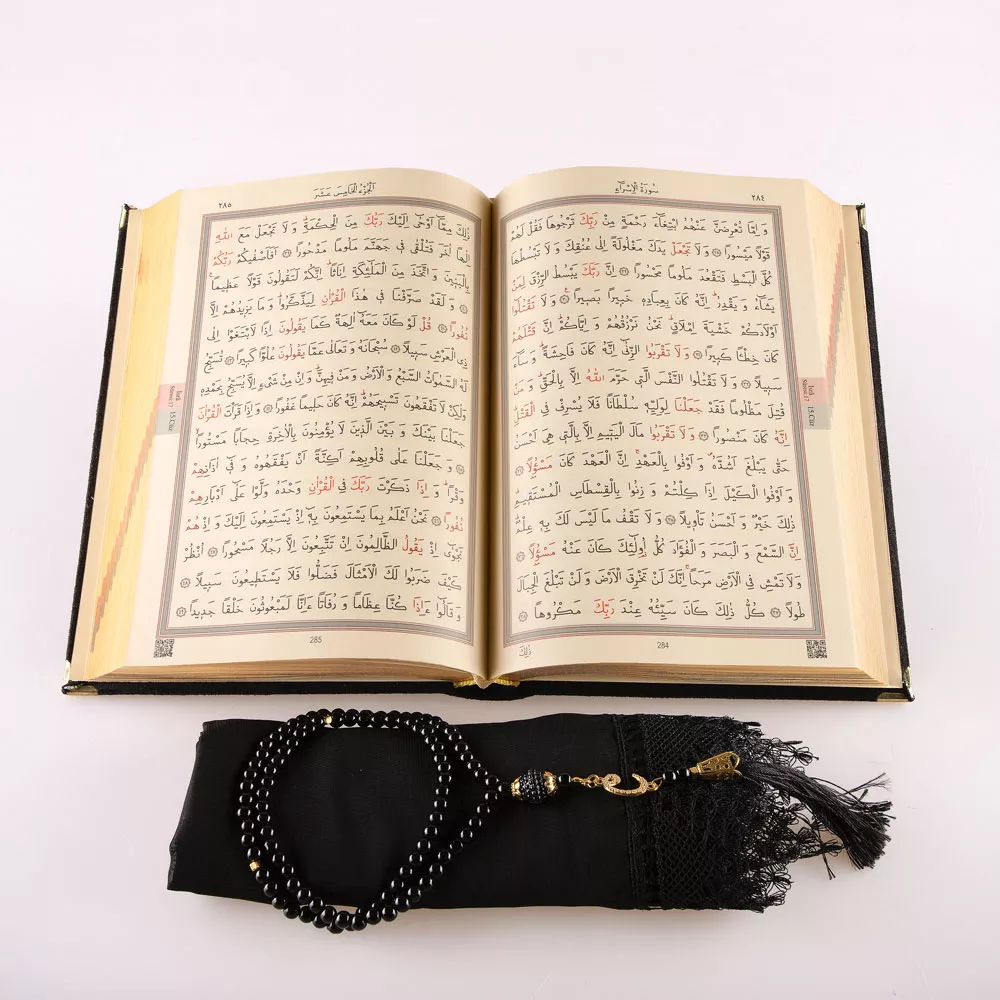 سُورَةُ الْاِسْرَٓاءِ
٢٨٤
وَ اِمَّا تُعْرِضَنَّ عَنْهُمُ ابْتِغَٓاءَ رَحْمَةٍ مِنْ رَبِّكَ تَرْجُوهَا فَقُلْ لَهُمْ
قَوْلًا مَيْسُورًا ﴿٢٨﴾ وَ لَا تَجْعَلْ يَدَكَ مَغْلُولَةً اِلٰى عُنُقِكَ وَ لَا تَبْسُطْهَا
كُلَّ الْبَسْطِ فَتَقْعُدَ مَلُومًا مَحْسُورًا ﴿٢٩﴾ اِنَّ رَبَّكَ يَبْسُطُ الرِّزْقَ لِمَنْ
يَشَٓاءُ وَ يَقْدِرُ اِنَّهُ كَانَ بِعِبَادِهِ خَبِيرًا بَصِيرًا ﴿٣٠﴾ وَ لَا تَقْتُلُٓوا
اَوْلَادَكُمْ خَشْيَةَ اِمْلَاقٍ نَحْنُ نَرْزُقُهُمْ وَ اِيَّاكُمْ اِنَّ قَتْلَهُمْ
كَانَ خِطْـًٔا كَبِيرًا ﴿٣١﴾ وَ لَا تَقْرَبُوا الزِّنٰٓى اِنَّهُ كَانَ فَاحِشَةً وَ سَٓاءَ
سَبِيلًا ﴿٣٢﴾ وَ لَا تَقْتُلُوا النَّفْسَ الَّتِي حَرَّمَ اللّٰهُ اِلَّا بِالْحَقِّ وَ مَنْ
قُتِلَ مَظْلُومًا فَقَدْ جَعَلْنَا لِوَلِيِّهِ سُلْطَانًا فَلَا يُسْرِفْ فِي الْقَتْلِ
اِنَّهُ كَانَ مَنْصُورًا ﴿٣٣﴾ وَ لَا تَقْرَبُوا مَالَ الْيَتِيمِ اِلَّا بِالَّتِي هِيَ اَحْسَنُ
حَتّٰى يَبْلُغَ اَشُدَّهُ وَ اَوْفُوا بِالْعَهْدِ اِنَّ الْعَهْدَ كَانَ مَسْؤُلًا ﴿٣٤﴾
وَ اَوْفُوا الْكَيْلَ اِذَا كِلْتُمْ وَ زِنُوا بِالْقِسْطَاسِ الْمُسْتَقِيمِ
ذٰلِكَ خَيْرٌ وَ اَحْسَنُ تَأْوِيلًا ﴿٣٥﴾ وَ لَا تَقْفُ مَا لَيْسَ لَكَ بِهِ عِلْمٌ
اِنَّ السَّمْعَ وَ الْبَصَرَ وَ الْفُؤَادَ كُلُّ اُولٰٓئِكَ كَانَ عَنْهُ مَسْؤُلًا ﴿٣٦﴾
وَ لَا تَمْشِ فِي الْاَرْضِ مَرَحًا اِنَّكَ لَنْ تَخْرِقَ الْاَرْضَ وَ لَنْ تَبْلُغَ الْجِبَالَ
طُولًا ﴿٣٧﴾ كُلُّ ذٰلِكَ كَانَ سَيِّئُهُ عِنْدَ رَبِّكَ مَكْرُوهًا ﴿٣٨﴾
284
ذٰلِكَ
İsrâ
Sûresi:17
15.Cüz
اَلْجُزْءُ الْخَامِسَ عَشَرَ
٢٨٥
ذٰلِكَ مِمَّٓا اَوْحٰٓى اِلَيْكَ رَبُّكَ مِنَ الْحِكْمَةِ وَ لَا تَجْعَلْ مَعَ اللّٰهِ
اِلٰهًا اٰخَرَ فَتُلْقٰى فِي جَهَنَّمَ مَلُومًا مَدْحُورًا ﴿٣٩﴾ اَفَاَصْفٰيكُمْ رَبُّكُمْ
بِالْبَنِينَ وَ اتَّخَذَ مِنَ الْمَلٰٓئِكَةِ اِنَاثًا اِنَّكُمْ لَتَقُولُونَ قَوْلًا عَظِيمًا
﴿٤٠﴾ وَ لَقَدْ صَرَّفْنَا فِي هٰذَا الْقُرْاٰنِ لِيَذَّكَّرُوا وَ مَا يَزِيدُهُمْ اِلَّا
نُفُورًا ﴿٤١﴾ قُلْ لَوْ كَانَ مَعَهُٓ اٰلِهَةٌ كَمَا يَقُولُونَ اِذًا لَابْتَغَوْا اِلٰى
ذِي الْعَرْشِ سَبِيلًا ﴿٤٢﴾ سُبْحَانَهُ وَ تَعَالٰى عَمَّا يَقُولُونَ عُلُوًّا كَبِيرًا ﴿٤٣﴾ تُسَبِّحُ
لَهُ السَّمٰوَاتُ السَّبْعُ وَ الْاَرْضُ وَ مَنْ فِيهِنَّ وَ اِنْ مِنْ شَيْءٍ اِلَّا يُسَبِّحُ بِحَمْدِهِ
وَلٰكِنْ لَا تَفْقَهُونَ تَسْبِيحَهُمْ اِنَّهُ كَانَ حَلِيمًا غَفُورًا ﴿٤٤﴾ وَ اِذَا قَرَأْتَ الْقُرْاٰنَ
جَعَلْنَا بَيْنَكَ وَ بَيْنَ الَّذِينَ لَا يُؤْمِنُونَ بِالْاٰخِرَةِ حِجَابًا مَسْتُورًا
﴿٤٥﴾ وَ جَعَلْنَا عَلٰى قُلُوبِهِمْ اَكِنَّةً اَنْ يَفْقَهُوهُ وَ فِٓي اٰذَانِهِمْ
وَقْرًا وَ اِذَا ذَكَرْتَ رَبَّكَ فِي الْقُرْاٰنِ وَحْدَهُ وَلَّوْا عَلٰٓى اَدْبَارِهِمْ
نُفُورًا ﴿٤٦﴾ نَحْنُ اَعْلَمُ بِمَا يَسْتَمِعُونَ بِهِٓ اِذْ يَسْتَمِعُونَ اِلَيْكَ وَ اِذْ هُمْ
نَجْوٰٓى اِذْ يَقُولُ الظَّالِمُونَ اِنْ تَتَّبِعُونَ اِلَّا رَجُلًا مَسْحُورًا ﴿٤٧﴾ اُنْظُرْ
كَيْفَ ضَرَبُوا لَكَ الْاَمْثَالَ فَضَلُّوا فَلَا يَسْتَطِيعُونَ سَبِيلًا ﴿٤٨﴾
وَ قَالُٓوا ءَاِذَا كُنَّا عِظَامًا وَ رُفَاتًا ءَاِنَّا لَمَبْعُوثُونَ خَلْقًا جَدِيدًا ﴿٤٩﴾
285
İsrâ
Sûresi:17
15.Cüz